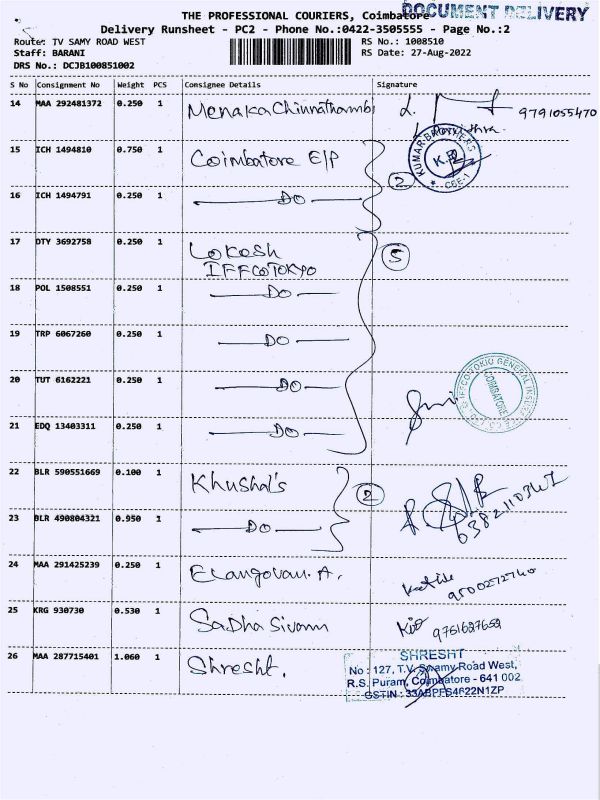 THE PROFESSIONAL COURIERS, Coimbatore
DOCUMENT DELIVERY
Delivery Runsheet - PC2 - Phone No.:0422-3505555 - Page No.:2
Route: TV SAMY ROAD WEST
RS No.: 1008510
Staff: BARANI
RS Date: 27-Aug-2022
DRS No.: DCJB100851002
S No Consignment No Weight PCS Consignee Details Signature
14 MAA 292481372 0.250 1 Menaka Chinnathambi 9791055470
15 ICH 1494810 0.750 1 Coimbatore E/P
KUMAR BROTHERS
K.B
* CBE-1
2
16 ICH 1494791 0.250 1 DO
17 DTY 3692758 0.250 1 Lokesh
IFFCOTOKYO
5
18 POL 1508551 0.250 1 DO
19 TRP 6067260 0.250 1 DO
20 TUT 6162221 0.250 1 DO
IFFCO TOKIO GENERAL INSURANCE CO. LTD.
COIMBATORE
21 EDQ 13403311 0.250 1 DO
22 BLR 590551669 0.100 1 Khushal's
2
23 BLR 490804321 0.950 1 DO
24 MAA 291425239 0.250 1 Elangovan. A.
9500272740
25 KRG 930730 0.530 1 Sadha Sivam
9751627659
26 MAA 287715401 1.060 1 Shresht.
SHRESHT
No : 127, T.V. Swamy Road West,
R.S. Puram, Coimbatore - 641 002
GSTIN : 33ABPFS4622N1ZP